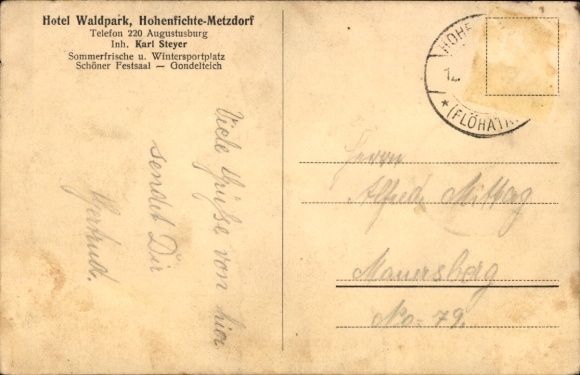 Hotel Waldpark, Hohenfichte-Metzdorf
Telefon 220 Augustusburg
Inh. Karl Steyer
Sommerfrische u. Wintersportplatz
Schöner Festsaal — Gondelteich
HOHE
12
* (FLÖHATAL
Viele Grüße von hier
sendet Dir
Gertrud.
Herrn
Alfred Mittag
Mauersberg
No. 79.